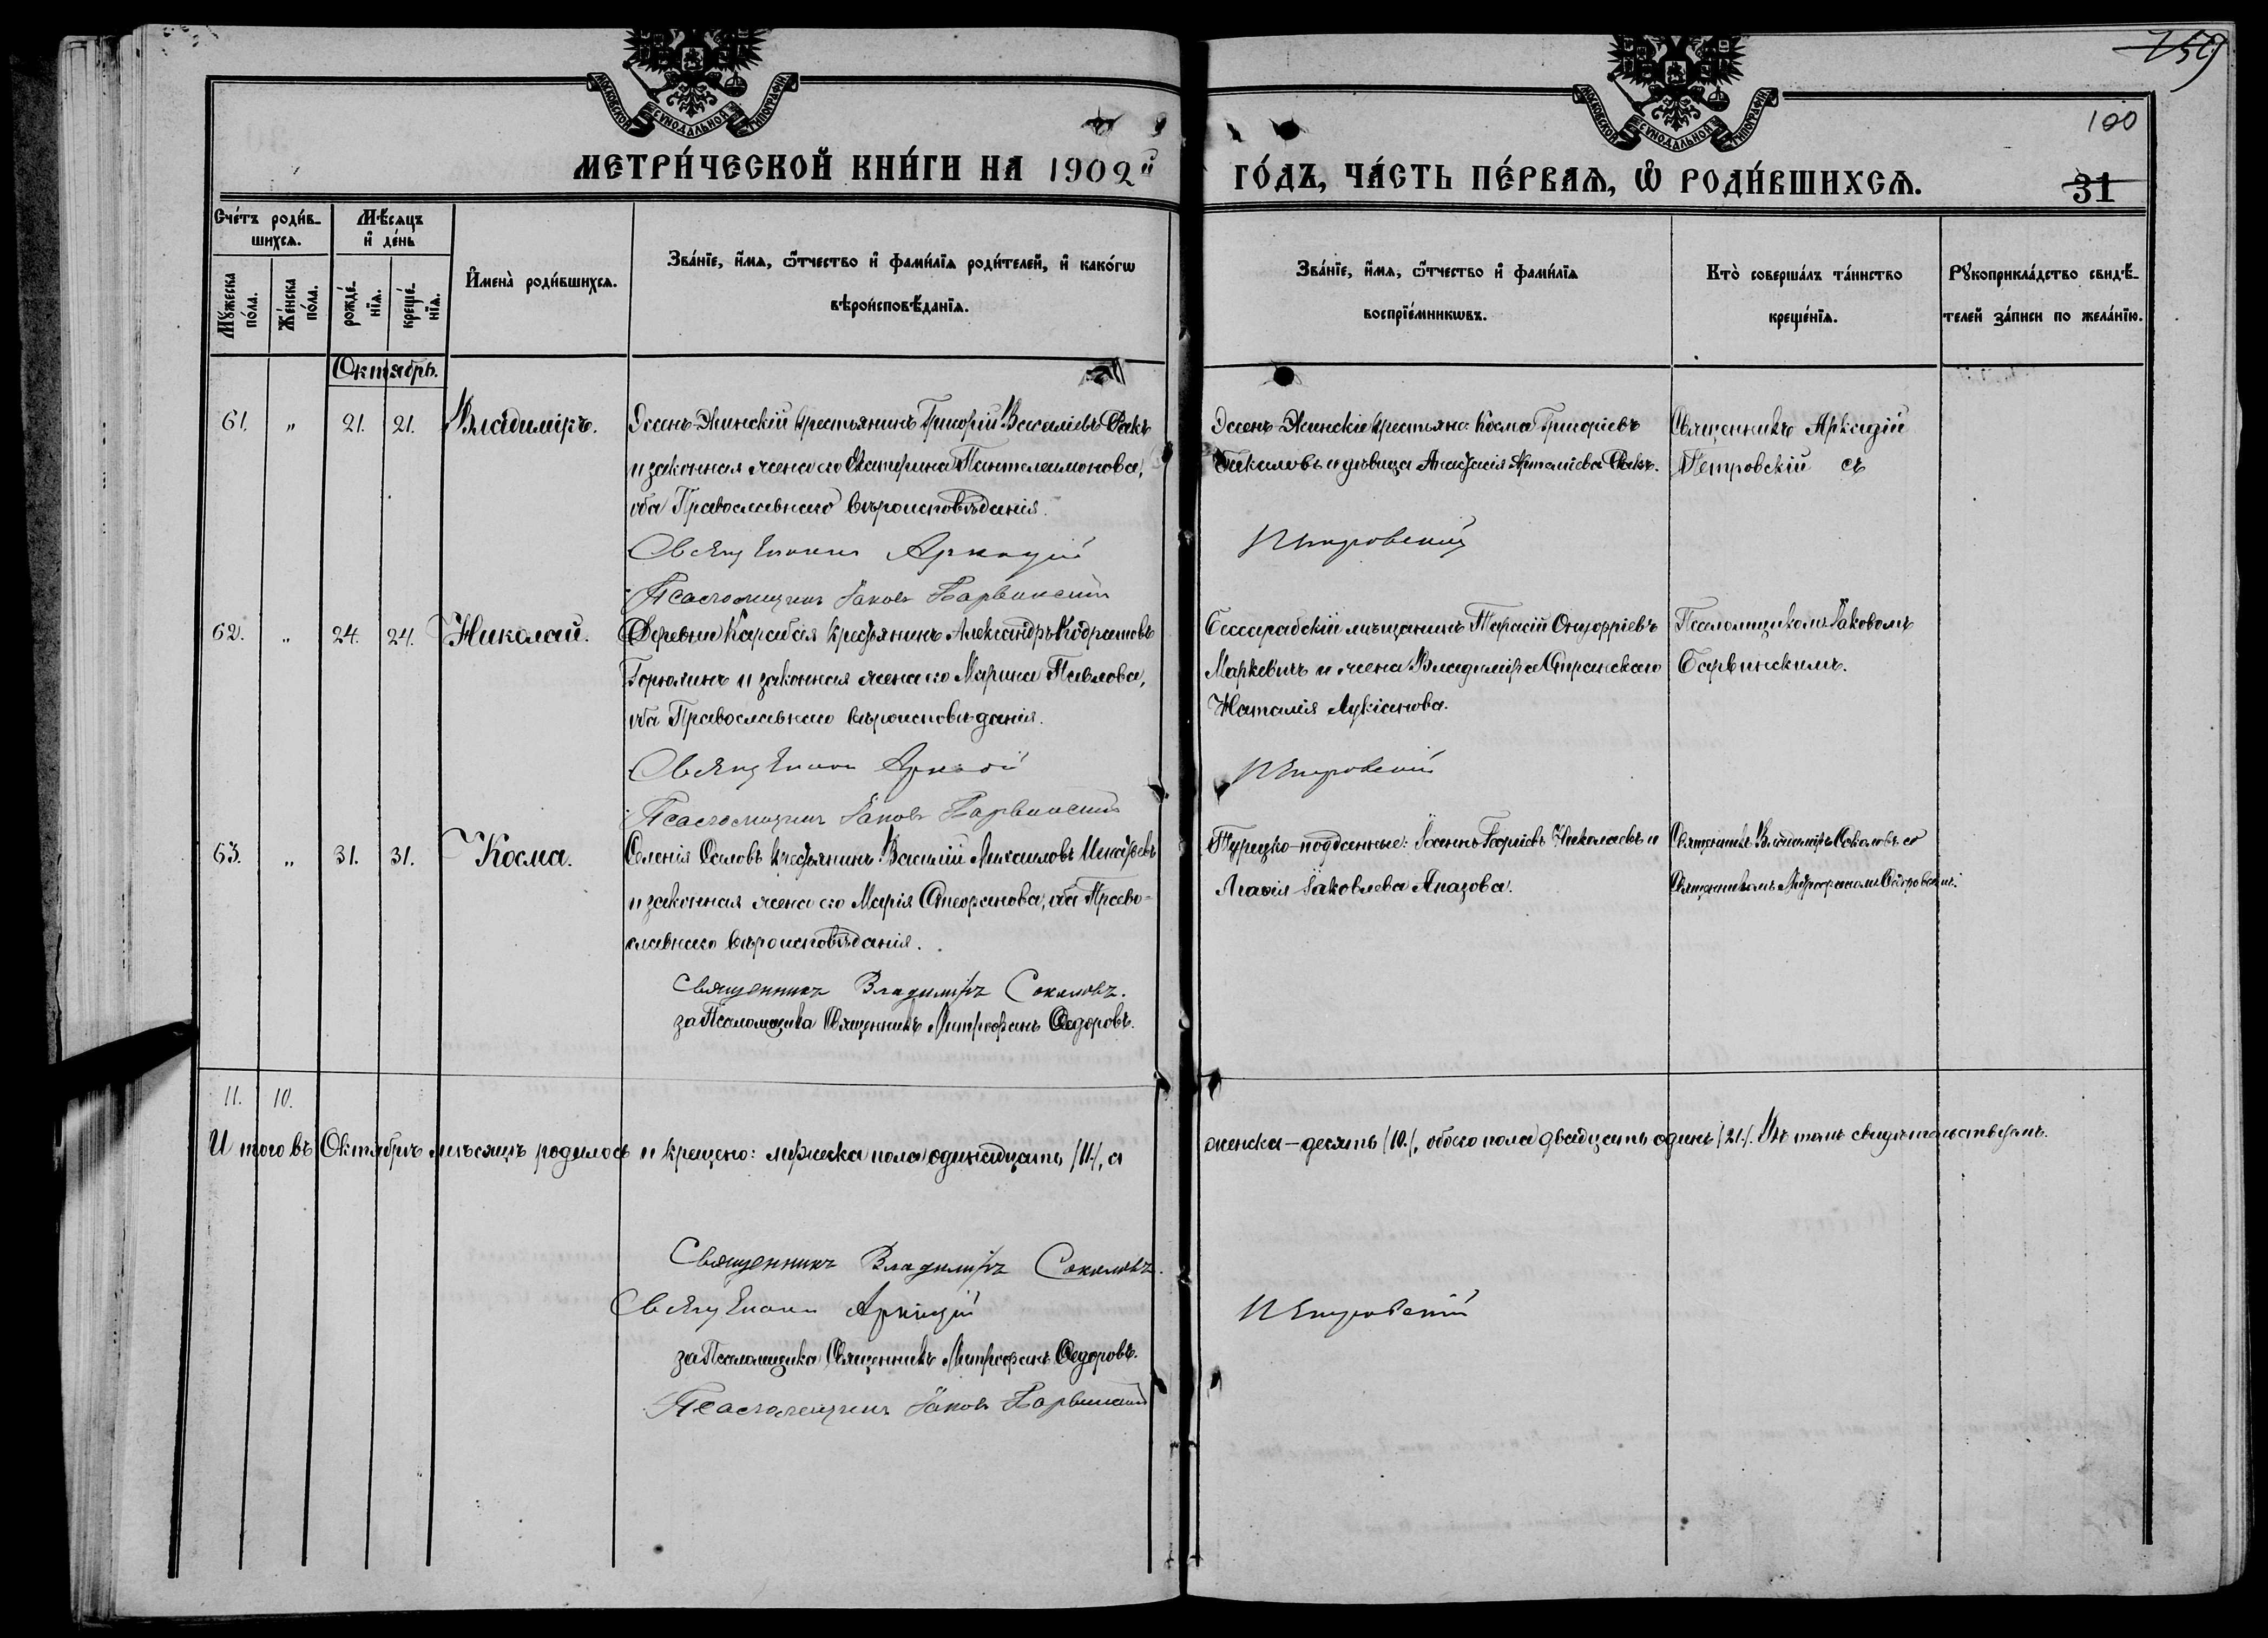 759
100
31
МОСКОВСКОЙ СѴНОДАЛЬНОЙ ТИПОГРАФІИ
МОСКОВСКОЙ СѴНОДАЛЬНОЙ ТИПОГРАФІИ
МЕТРИ́ЧЕСКОЙ КНИ́ГИ НА 1902й ГО́ДЪ, ЧА́СТЬ ПЕ́РВАѦ, Ѡ РОДИ́ВШИХСѦ.
Сче́тъ роди́в-
шихсѧ.
Мꙋ́жеска
по́ла.
Же́нска
по́ла.
Мѣ́сѧцъ
и҆ де́нь
рожде́-
нїѧ.
креще́-
нїѧ.
И҆мена̀ роди́вшихсѧ.
Зва́нїе, и҆́мѧ, ѻ҆́тчество и҆ фами́лїѧ роди́телей, и҆ како́гѡ
вѣроисповѣ́данїѧ.
Зва́нїе, и҆́мѧ, ѻ҆́тчество и҆ фами́лїѧ
воспрїе́мникѡвъ.
Кто̀ соверша́лъ та́инство
креще́нїѧ.
Рꙋкоприкла́дство свидѣ́-
телей за́писи по жела́нїю.
Октябрь.
61. „ 21. 21. Владиміръ.
Эсенъ-Экинскій крестьянинъ Григорій Василіевъ Факъ
и законная жена его Екатерина Пантелеимонова,
оба Православнаго вѣроисповѣданія.
Священникъ Аркадій
Псаломщикъ Іаковъ Барвинскій
Эсенъ-Экинскіе крестьяне: Косма Григоріевъ
Бакаловъ и дѣвица Анастасія Артеміева Факъ.
Петровскій
Священникъ Аркадій
Петровскій съ
62. „ 24. 24. Николай.
Деревни Карабая крестьянинъ Александръ Кодратовъ
Горюлинъ и законная жена его Марина Павлова,
оба Православнаго вѣроисповѣданія.
Священникъ Аркадій
Псаломщикъ Іаковъ Барвинскій
Бессарабскій мѣщанинъ Тарасій Онуфріевъ
Маркевичъ и жена Владиміра Спранскаго
Наталія Лукіанова.
Петровскій
Псаломщикомъ Іаковомъ
Барвинскимъ.
63. „ 31. 31. Косма.
Селенія Саловъ крестьянинъ Василій Михаиловъ
и законная жена его Марія Стефанова, оба Право-
славнаго вѣроисповѣданія.
Священникъ Владиміръ Соколовъ.
за Псаломщика Священникъ Митрофанъ Ѳедоровъ.
Турецко-подданные: Іоаннъ Георгіевъ Николаевъ и
Агаѳія Іаковлева Апазова.
Священникъ Владиміръ Соколовъ со
Священникомъ Митрофаномъ Ѳедоровымъ.
11. 10.
И того въ Октябрѣ мѣсяцѣ родилось и крещено: мужеска пола одинадцать /11/, а
женска – десять /10./, обоего пола двадцать одинъ /21./. Въ томъ свидѣтельствуемъ.
Священникъ Владиміръ Соколовъ.
Священникъ Аркадій Петровскій
за Псаломщика Священникъ Митрофанъ Ѳедоровъ.
Псаломщикъ Іаковъ Барвинскій